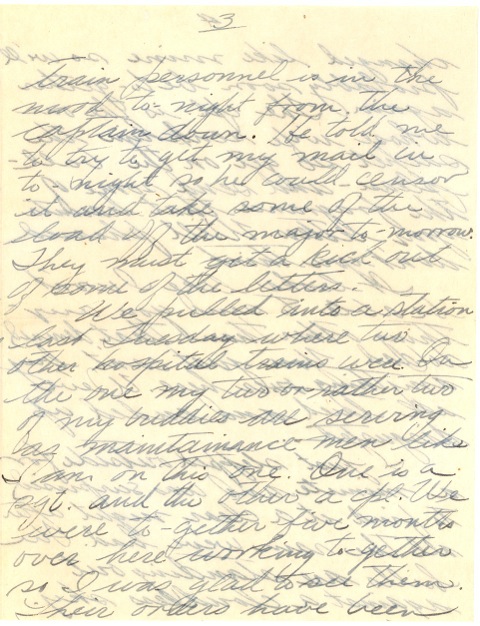 3
train personnel is in the
mood to-night from the
Captain down. He told me
to try to get my mail in
to night so he could censor
it and take some of the
load off the major to-morrow.
They must get a kick out
of some of the letters.
We pulled into a station
last Tuesday where two
other hospital trains were. On
the one my two or rather two
of my buddies are serving
as maintainance men like
I am on this one. One is a
Sgt. and the other a cpl. We
were to-gether five months
over here working to-gether
so I was glad to see them.
Their orders have been